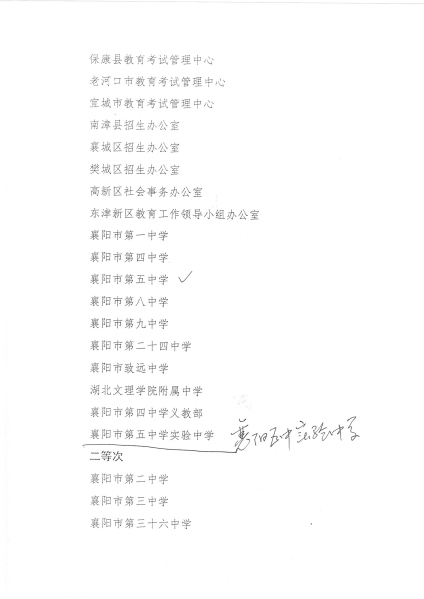 保康县教育考试管理中心
老河口市教育考试管理中心
宜城市教育考试管理中心
南漳县招生办公室
襄城区招生办公室
樊城区招生办公室
高新区社会事务办公室
东津新区教育工作领导小组办公室
襄阳市第一中学
襄阳市第四中学
襄阳市第五中学 ✓
襄阳市第八中学
襄阳市第九中学
襄阳市第二十四中学
襄阳市致远中学
湖北文理学院附属中学
襄阳市第四中学义教部
襄阳市第五中学实验中学 襄阳五中实验中学
二等次
襄阳市第二中学
襄阳市第三中学
襄阳市第三十六中学